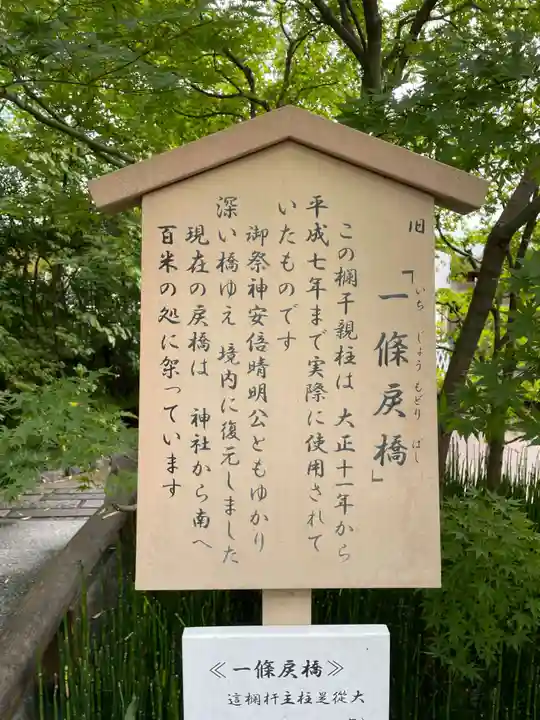 旧「一條戻橋」
いち じょう もどり ばし
この欄干親柱は 大正十一年から
平成七年まで実際に使用されて
いたものです
御祭神安倍晴明公ともゆかり
深い橋ゆえ 境内に復元しました
現在の戻橋は 神社から南へ
百米の処に架っています
≪一條戻橋≫
這欄杆主柱是從大